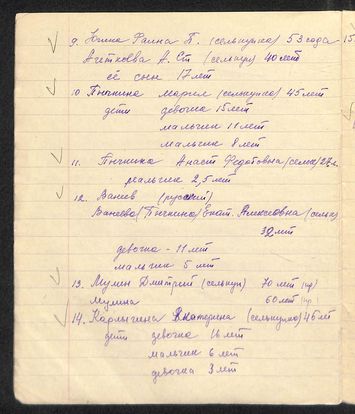 9. Юнина Фаина П. (селькупка) 53 года
А. Ст. (селькуп) 40 лет
её сын 17 лет
10 Пычкина Мария (селькупка) 45 лет.
дети девочка 15 лет
мальчик 11 лет
мальчик 8 лет
11. Пычкина Анаст Федотовна (сельк) 27 л.
мальчик 2,5 лет
12. Ванев (русский)
Ванева (Пычкина) Екат. Алексеевна (сельк)
32 лет
девочка - 11 лет
мальчик 5 лет
13. Мулин Дмитрий (селькуп) 70 лет
Мулина 60 лет
14. Карлыгина Екатерина (селькупка) 45 лет
дети девочка 16 лет
мальчик 6 лет
девочка 3 лет
15